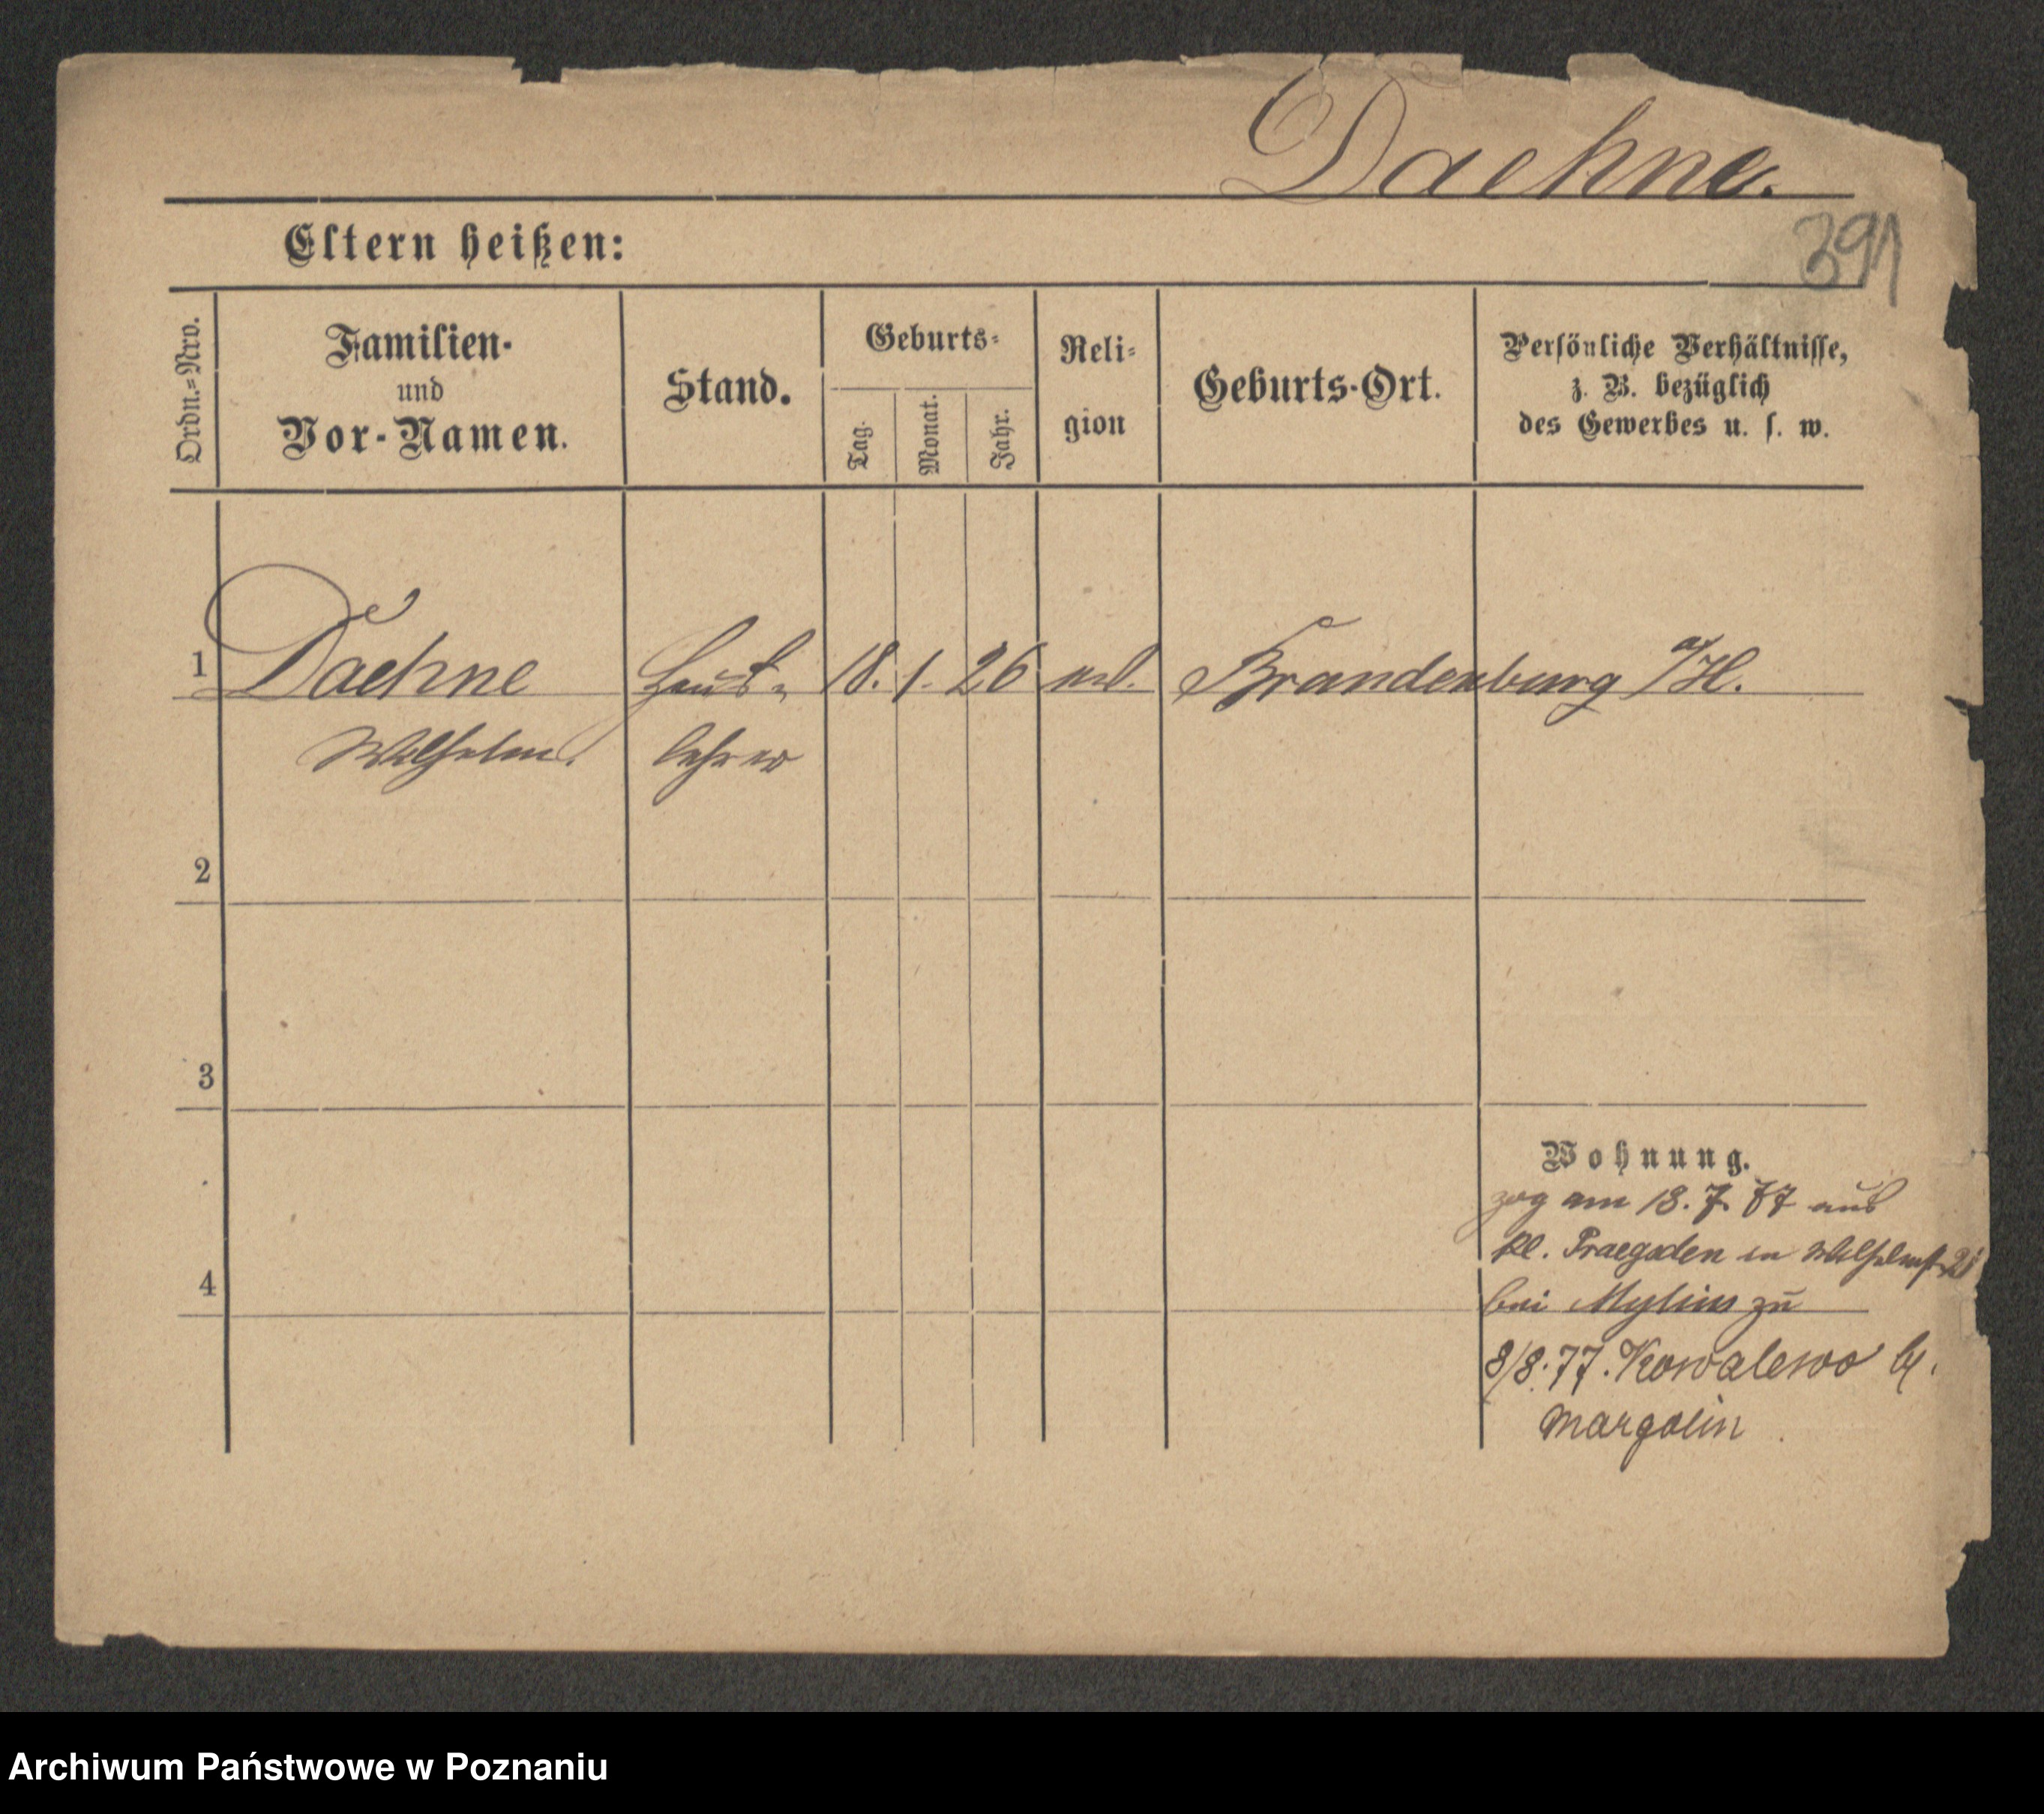 Daehne.
391
Eltern heißen:
Ordn.=Nro.
Familien-
und
Vor-Namen.
Stand.
Geburts=
Tag.
Monat.
Jahr.
Reli=
gion
Geburts-Ort.
Persönliche Verhältnisse,
z. B. bezüglich
des Gewerbes u. s. w.
1 Daehne Haus= 18. 1. 26 Brandenburg a/H.
Wilhelm. lehrer
2
3
Wohnung.
zog am 18. 7. 77 aus
Kl. in Wilhelmst.
4
bei Mylius zu
8/8.77. Kowalewo b/.
Margolin
Archiwum Państwowe w Poznaniu